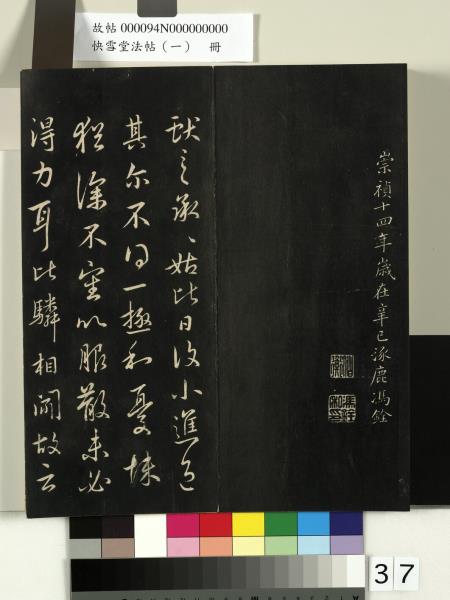 故帖 000094N000000000
快雪堂法帖（一） 冊
崇禎十四年歲在辛巳涿鹿馮銓
獻之承姑比日復小進退
其尔不得一極和憂悚
猶深不審以服散未必
得力耳比驎相聞故云
37